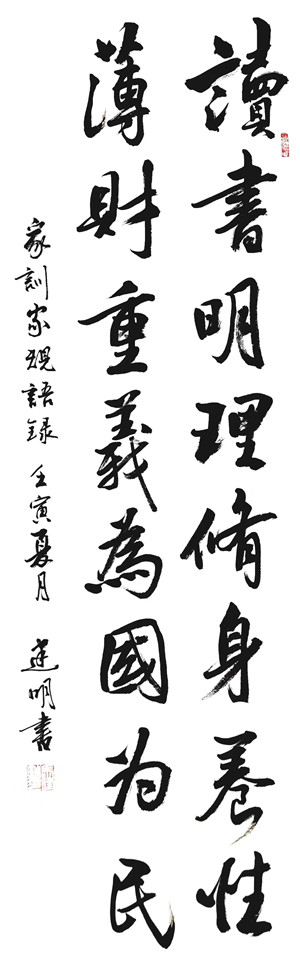 讀書明理脩身養性
薄財重義為國为民
家訓家規語錄 壬寅夏月 建明書